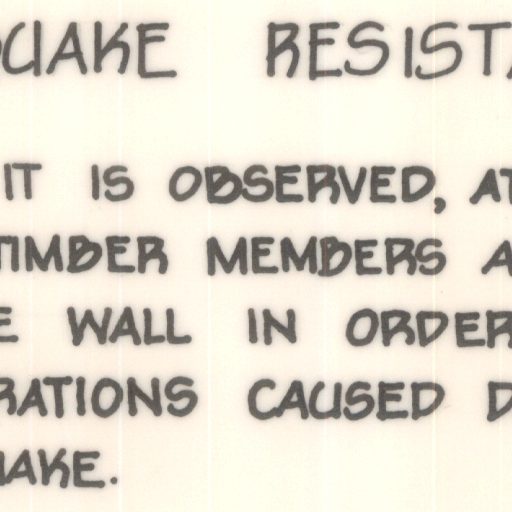 QUAKE RESISTA
IT IS OBSERVED, AT
TIMBER MEMBERS A
E WALL IN ORDER
RATIONS CAUSED D
UAKE.